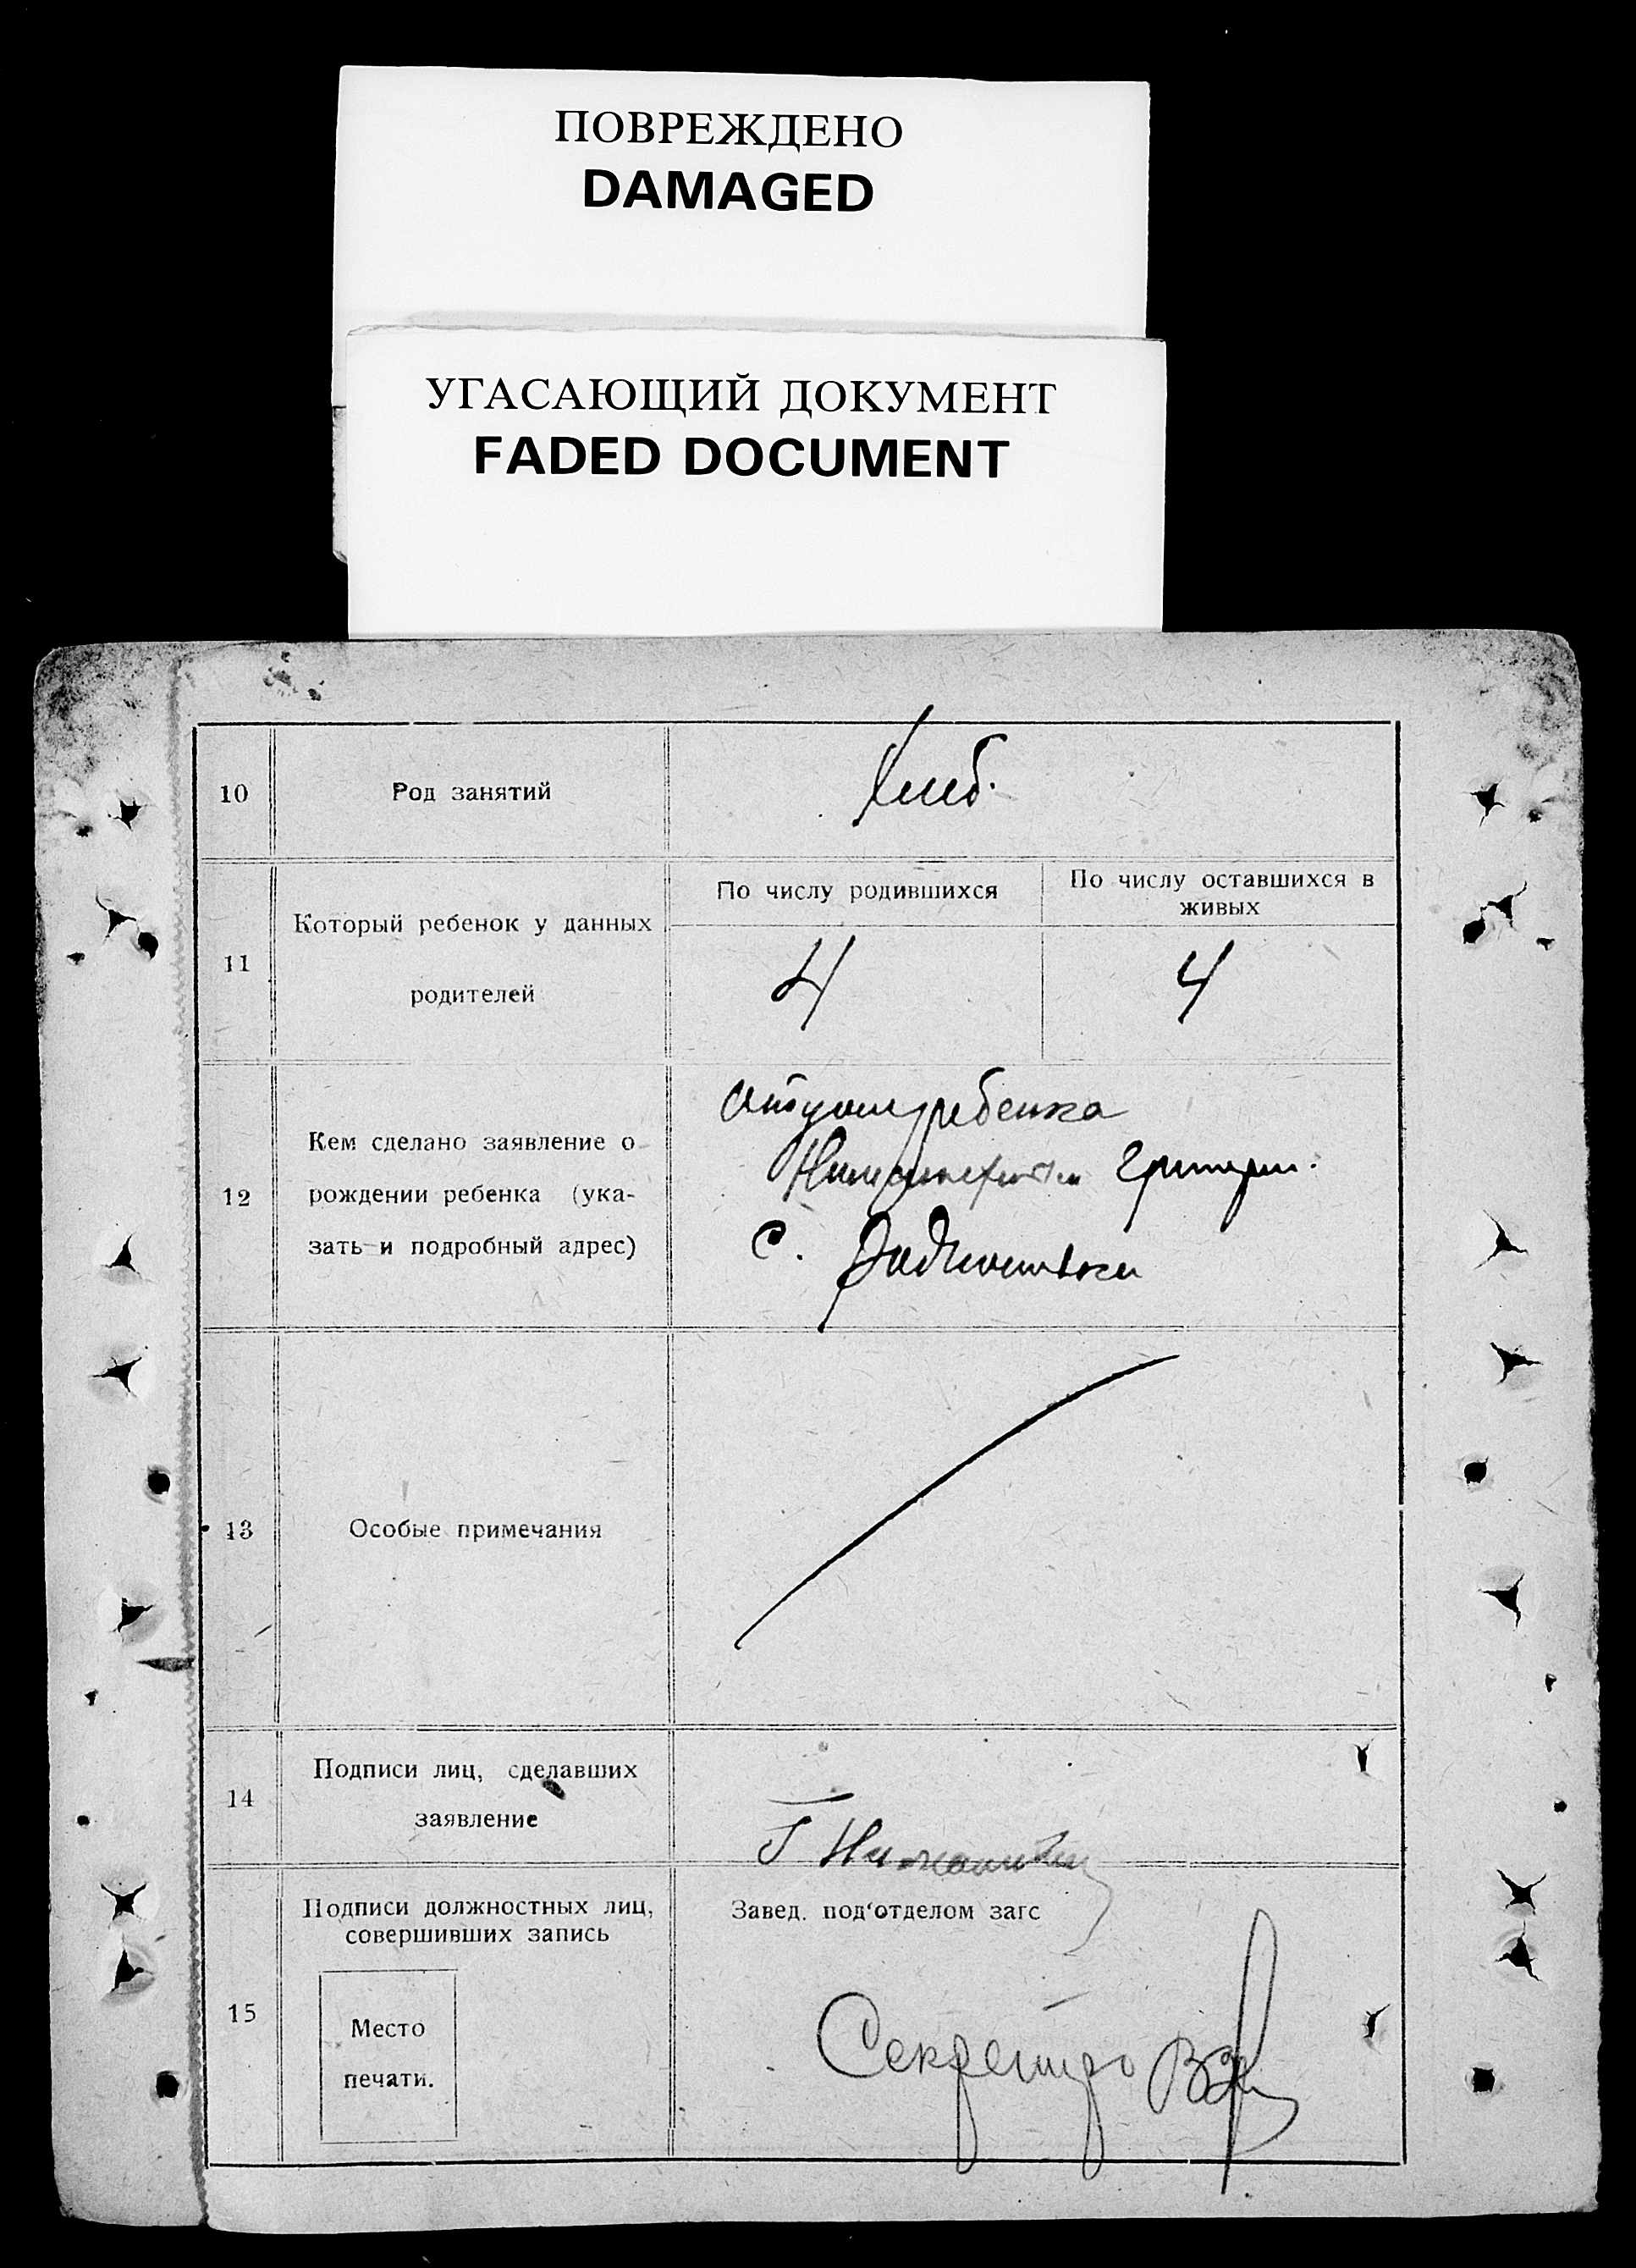 ПОВРЕЖДЕНО
DAMAGED
УГАСАЮЩИЙ ДОКУМЕНТ
FADED DOCUMENT
10
Род занятий
Хлеб.
11
Который ребенок у данных
родителей
По числу родившихся
По числу оставшихся в
живых
4
4
12
Кем сделано заявление о
рождении ребенка (ука-
зать и подробный адрес)
ребенка
С.
13
Особые примечания
14
Подписи лиц, сделавших
заявление
Г
15
Подписи должностных лиц,
совершивших запись
Место
печати.
Завед. под'отделом загс